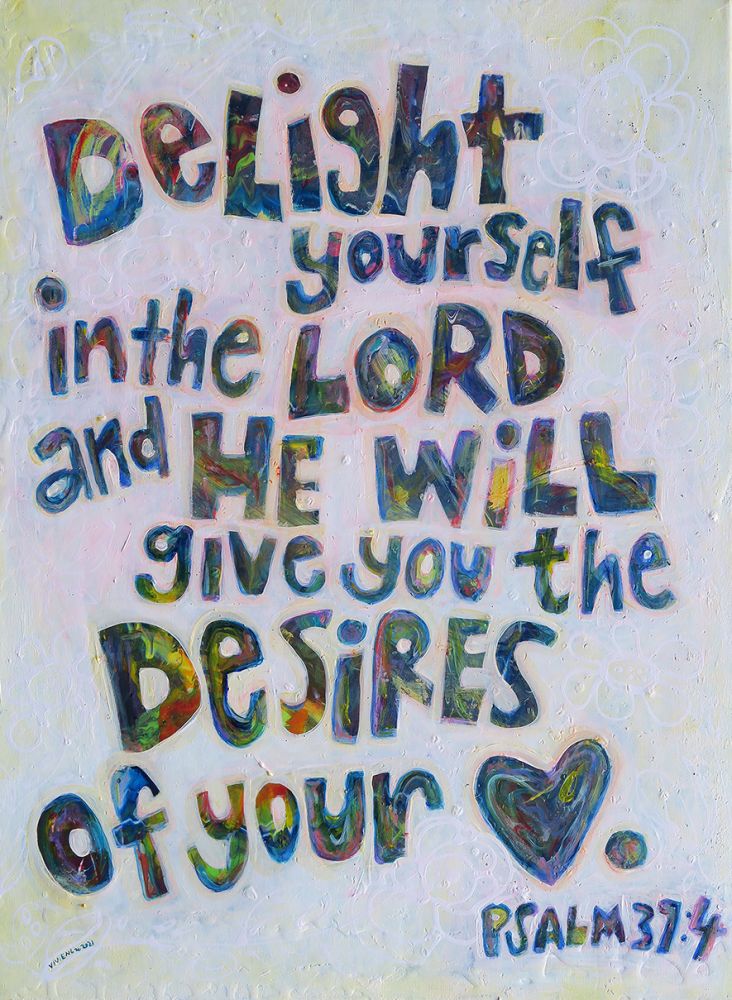 DeLight
yourself
in the LORD
and HE WiLL
give you the
DeSiRES
of your ♥.
PSALM 37:4